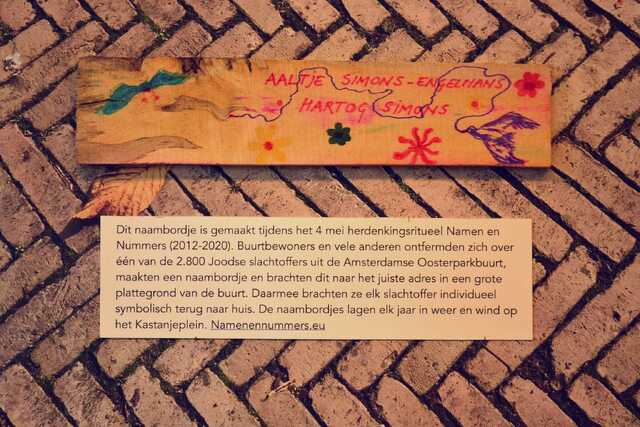 AALTJE SIMONS-ENGELMANS
HARTOG SIMONS
Dit naambordje is gemaakt tijdens het 4 mei herdenkingsritueel Namen en
Nummers (2012-2020). Buurtbewoners en vele anderen ontfermden zich over
één van de 2.800 Joodse slachtoffers uit de Amsterdamse Oosterparkbuurt,
maakten een naambordje en brachten dit naar het juiste adres in een grote
plattegrond van de buurt. Daarmee brachten ze elk slachtoffer individueel
symbolisch terug naar huis. De naambordjes lagen elk jaar in weer en wind op
het Kastanjeplein. Namenennummers.eu